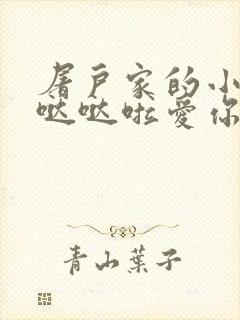 屠户家的小
哒哒啦爱你
青山葉子